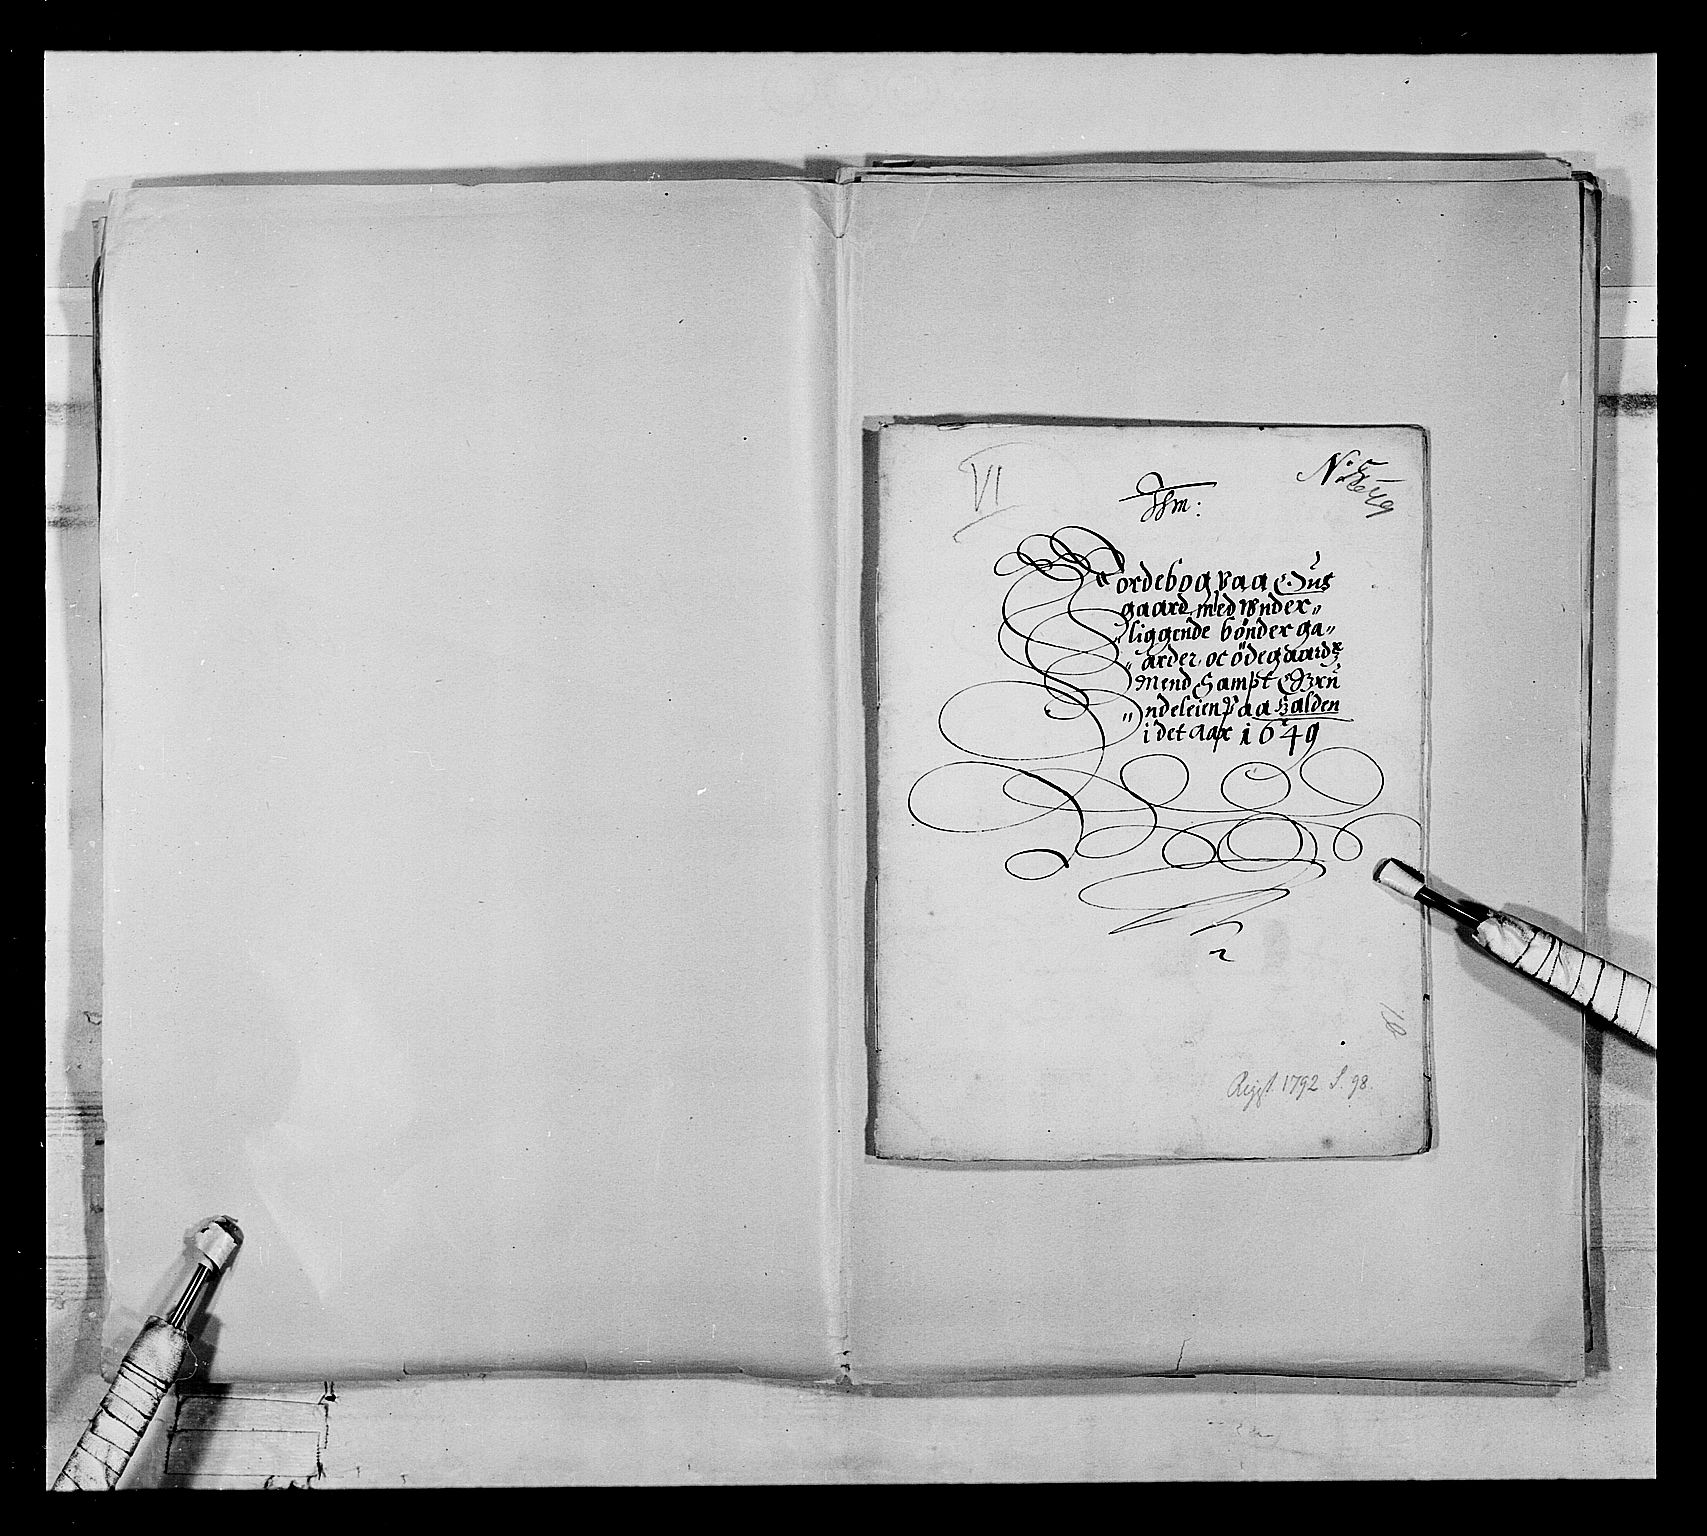 VI
No: 5
1649
Jhm:
Jordebog paa Huus
gaard med Under„
„liggende bønder ga„
„arder, oc ödegaards
Mend Sampt Grü
„ndeleien Paa Halden
i det Aar 1649
Regst. 1792 S. 98.